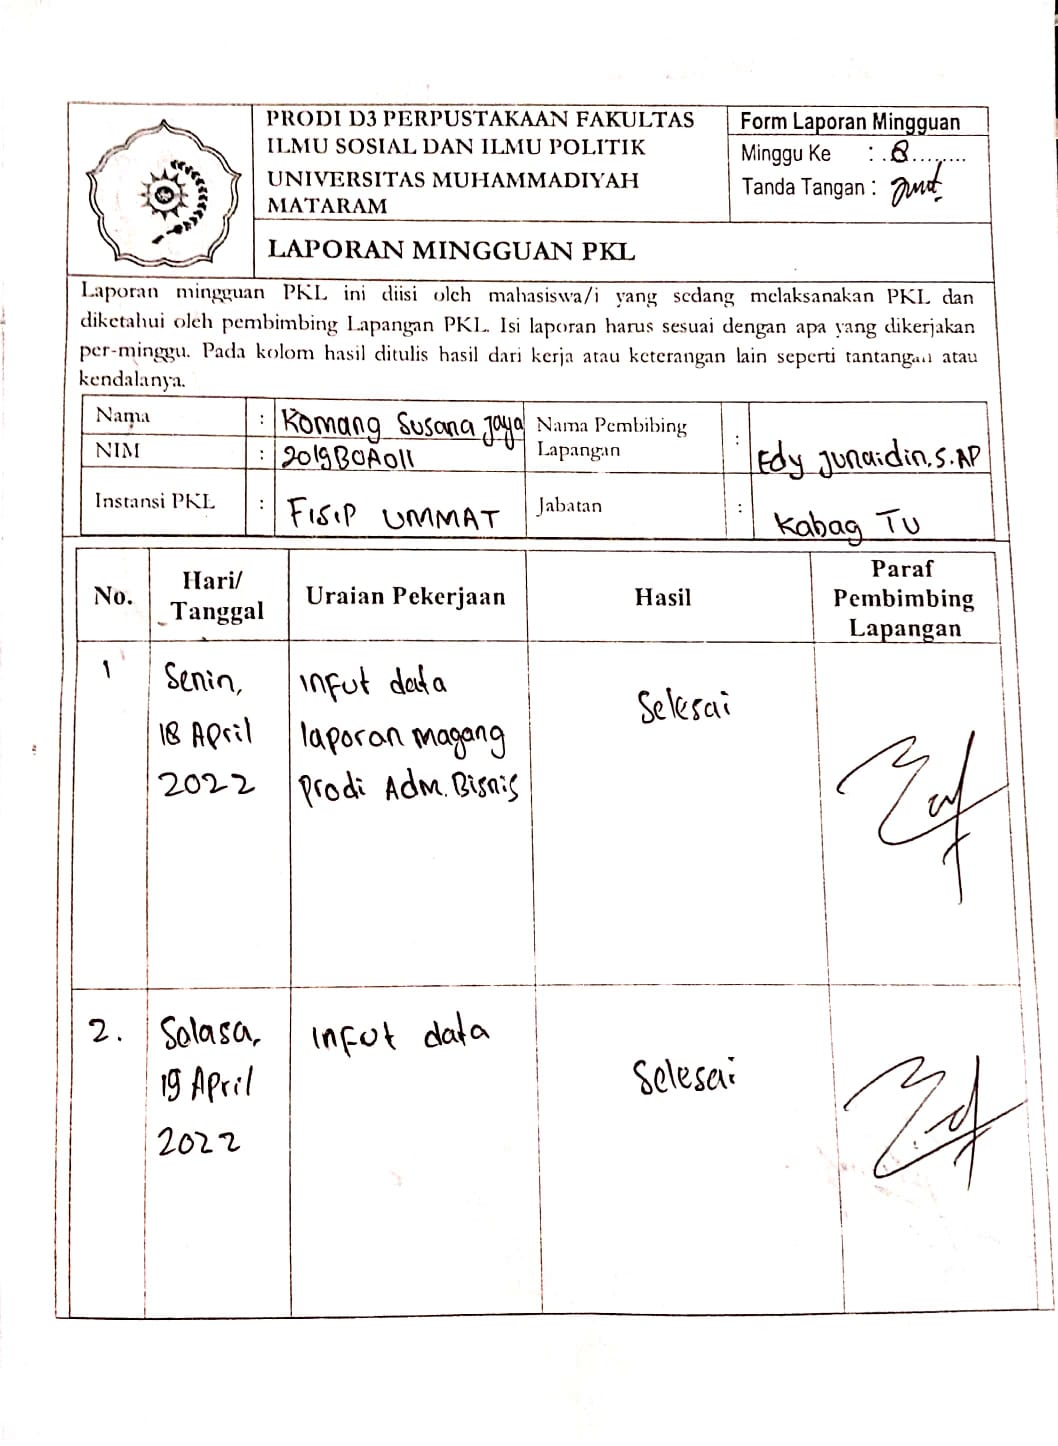 PRODI D3 PERPUSTAKAAN FAKULTAS
ILMU SOSIAL DAN ILMU POLITIK
UNIVERSITAS MUHAMMADIYAH
MATARAM
LAPORAN MINGGUAN PKL
Form Laporan Mingguan
Minggu Ke : .8........
Tanda Tangan :
Laporan mingguan PKL ini diisi oleh mahasiswa/i yang sedang melaksanakan PKL dan
diketahui oleh pembimbing Lapangan PKL. Isi laporan harus sesuai dengan apa yang dikerjakan
per-minggu. Pada kolom hasil ditulis hasil dari kerja atau keterangan lain seperti tantangan atau
kendalanya.
Nama : Komang Susana Jaya
NIM : 2019B0A011
Instansi PKL : FISIP UMMAT
Nama Pembibing
Lapangan : Edy Junaidin, S.AP
Jabatan : Kabag TU
No.
Hari/
Tanggal
Uraian Pekerjaan
Hasil
Paraf
Pembimbing
Lapangan
1
Senin,
18 April
2022
Infut data
laporan magang
Prodi Adm. Bisnis
Selesai
2.
Salasa,
19 April
2022
Infut data
Selesai